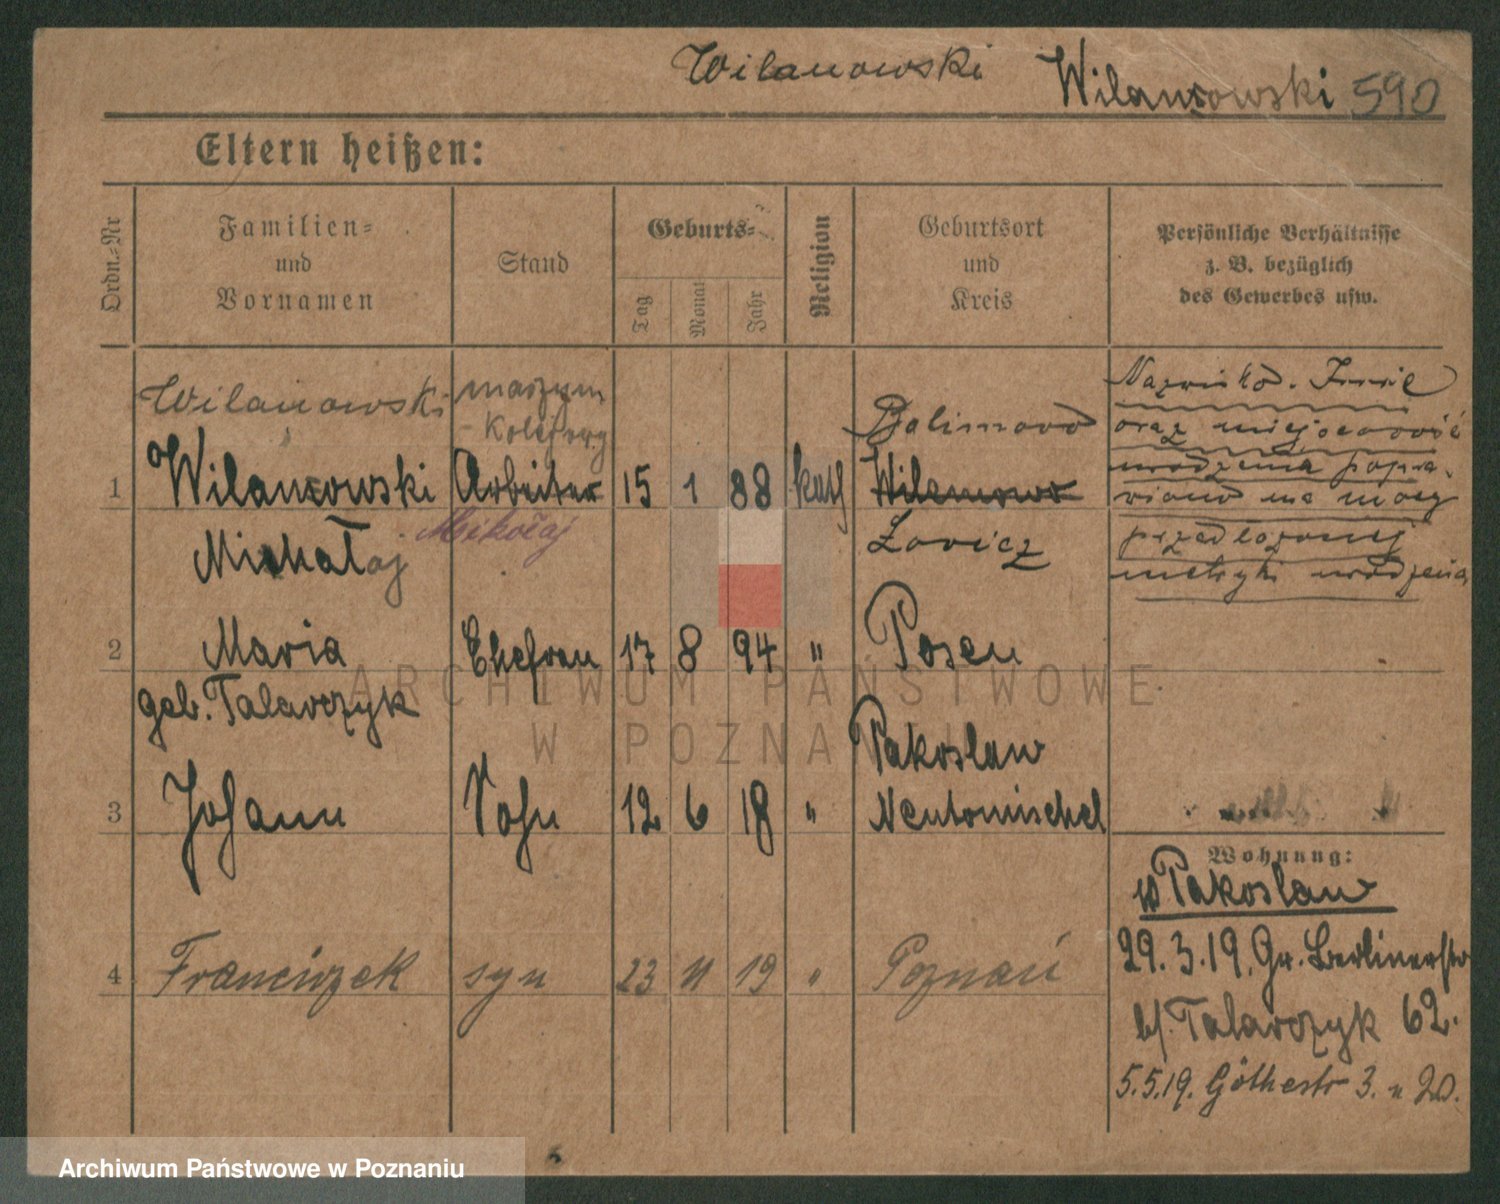 Wilanowski Wilanowski 590
Eltern heißen:
Ordn.-Nr
Familien- und Vornamen
Stand
Geburts-
Tag
Monat
Jahr
Religion
Geburtsort und Kreis
Persönliche Verhältnisse
z. B. bezüglich
des Gewerbes usw.
Wilanowski
1 Wilanowski Arbeiter 15 1 88 kath Wilanowo
Bolimowo
Michałaj Mikołaj
Łowicz
Nazwisko. Imię
oraz miejscowość
urodzenia popra-
wiono na mocy
przedłożonej
metryki urodzenia
2 Maria Ehefrau 17 8 94 " Posen
geb. Talarczyk
Pakoslaw
3 Johann Sohn 12 6 18 " Neutomischel
Wohnung:
Pakoslaw
29.3.19. Gr. Berlinerstr
b/. Talarczyk 62.
5.5.19. Göthestr 3. 20.
4 Franciszek syn 23 11 19 " Poznań
ARCHIWUM PAŃSTWOWE
W POZNANIU
Archiwum Państwowe w Poznaniu